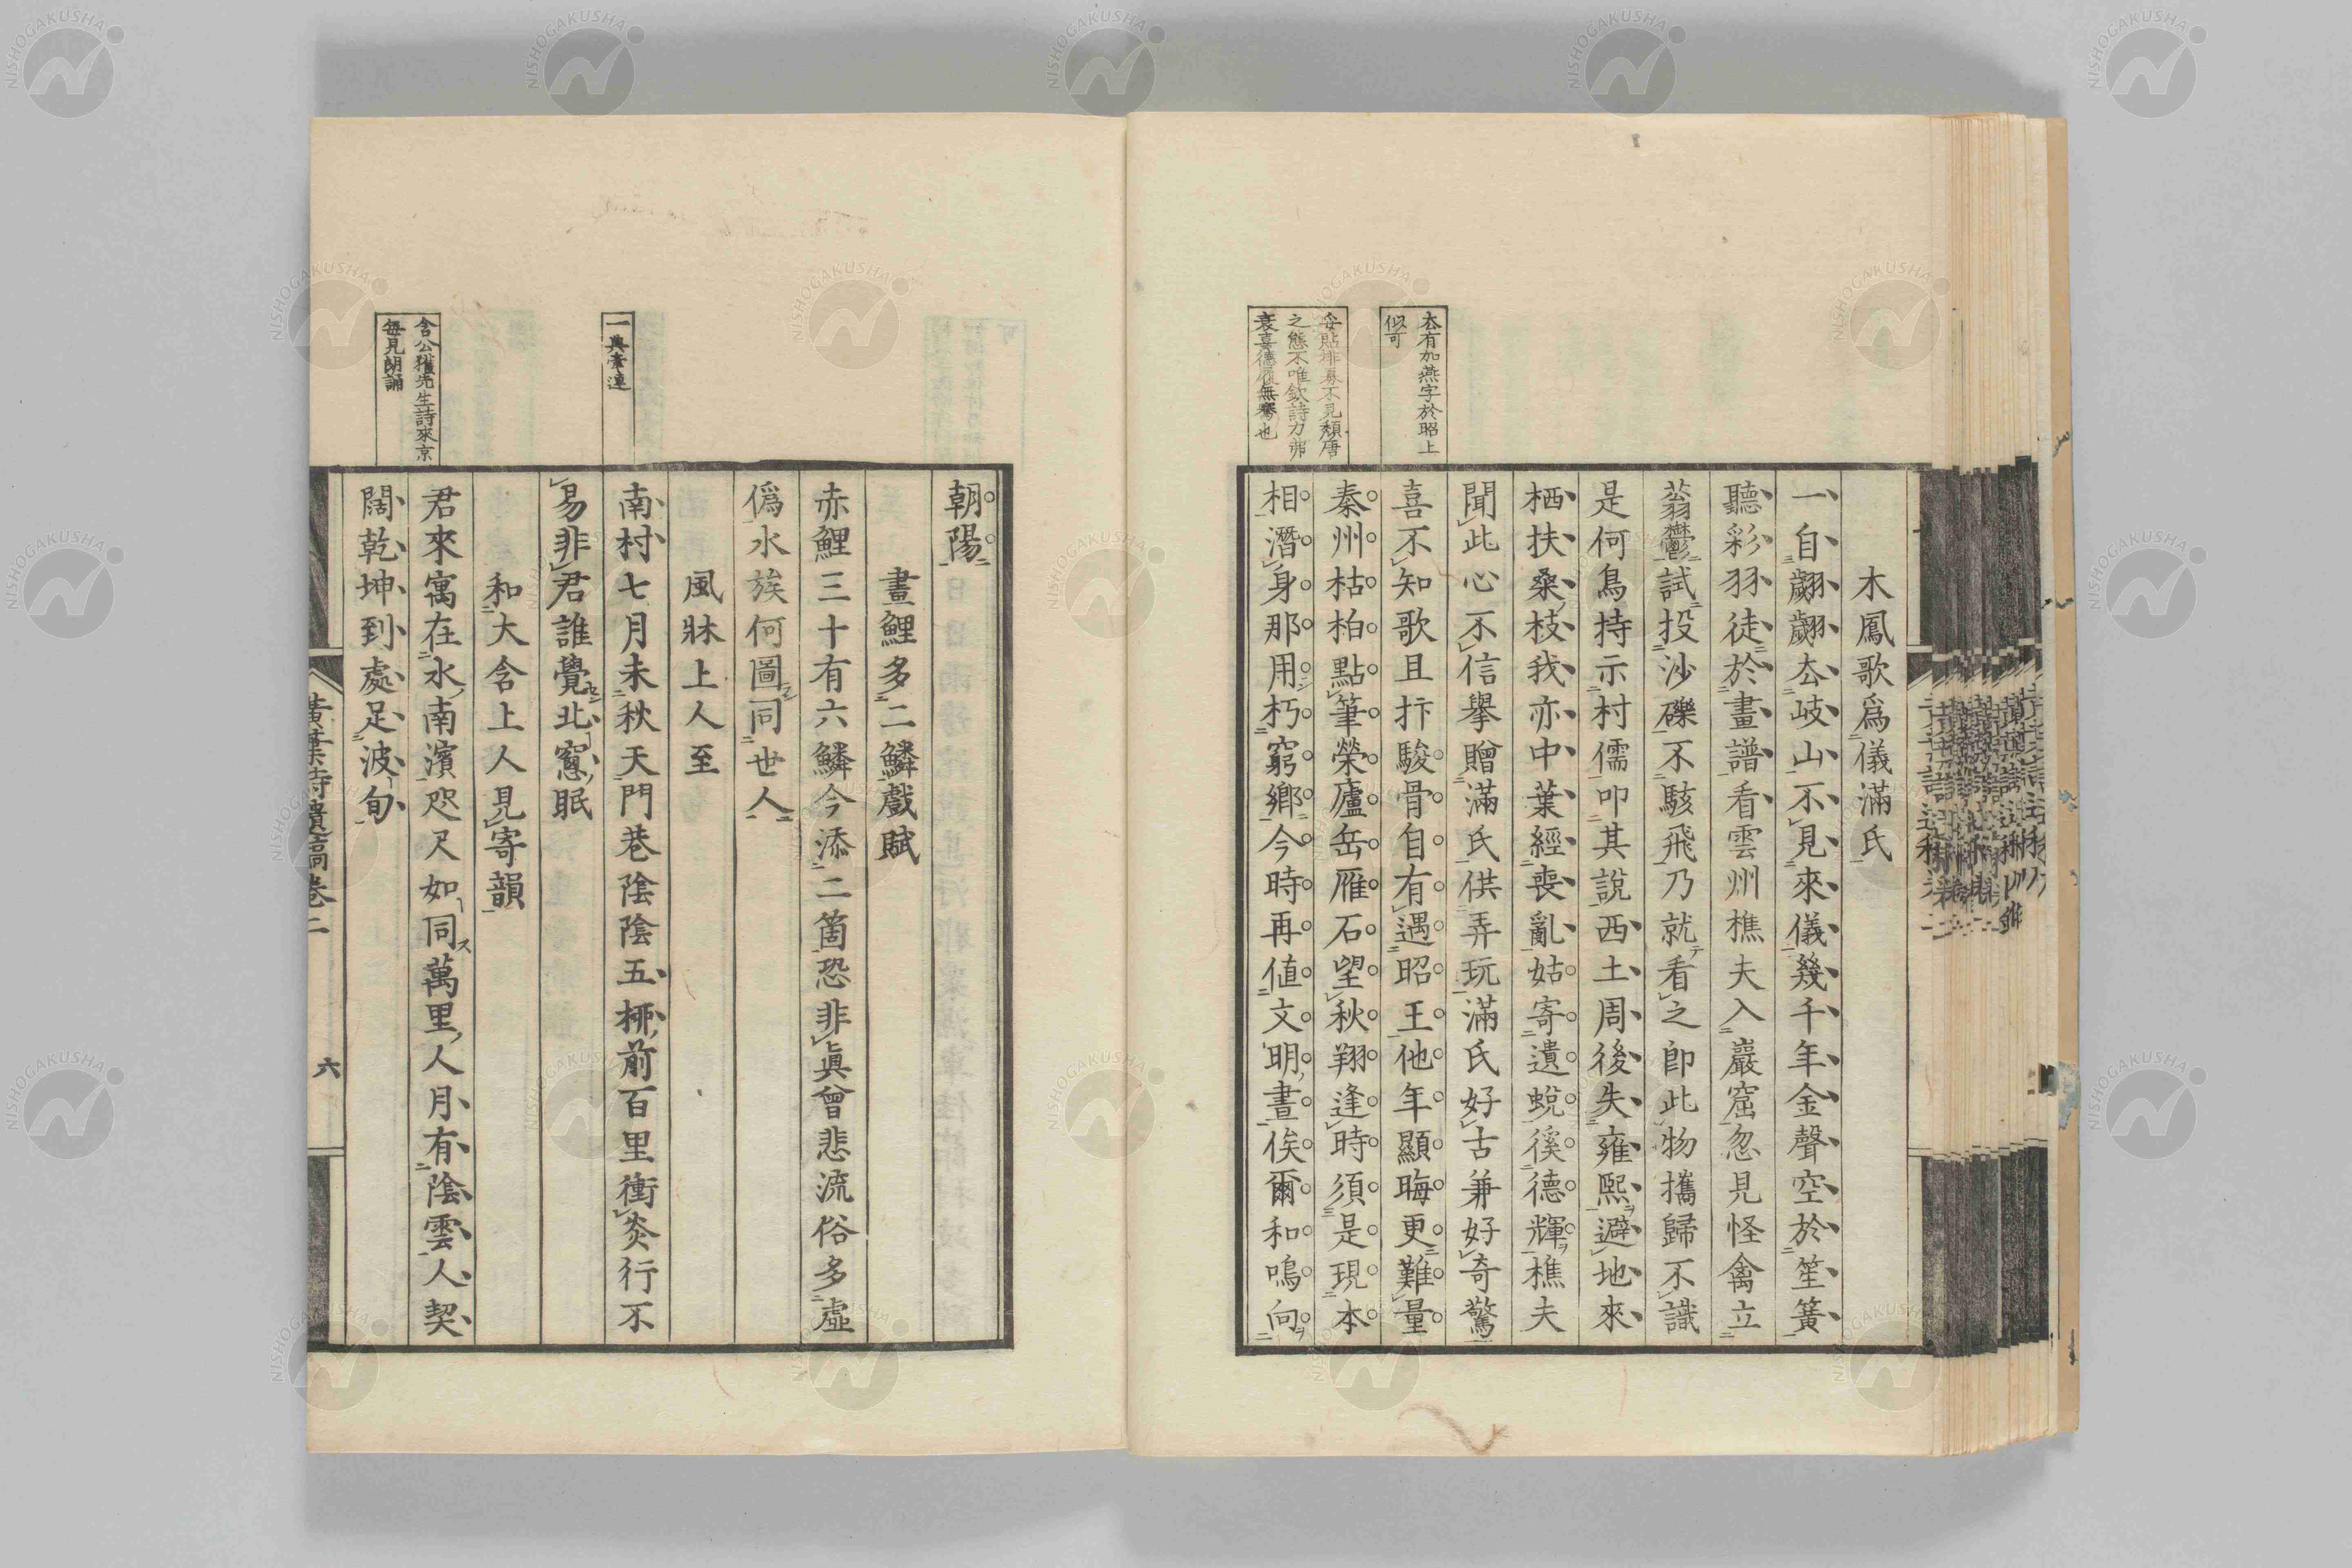 木鳳歌爲儀滿氏
一自翽翽去岐山不見來儀幾千年金聲空於笙簧
聽彩羽徒於畫譜看雲州樵夫入巖窟忽見怪禽立
蓊鬱試投沙礫不駭飛乃就看之卽此物攜歸不識
是何鳥持示村儒叩其說西土周後失雍熙避地來
栖扶桑枝我亦中葉經喪亂姑寄遺蛻徯德輝樵夫
聞此心不信擧贈滿氏供弄玩滿氏好古兼好奇驚
喜不知歌且抃駿骨自有遇昭王他年顯晦更難量
秦州枯柏點筆榮廬岳雁石望秋翔逢時須是現本
相潛身那用朽窮鄉今時再値文明晝俟爾和鳴向
去有加燕字於昭上
似可
妥貼排奡不見頹唐
之態不唯欽詩力弗
衰喜德履無騫也
朝陽
畫鯉多二鱗戲賦
赤鯉三十有六鱗今添二箇恐非眞曾悲流俗多虛
僞水族何圖同世人
風牀上人至
南村七月未秋天門巷陰陰五柳前百里衝炎行不
易非君誰覺北窻眠
和大含上人見寄韻
君來寓在水南濱咫尺如同萬里人月有陰雲人契
闊乾坤到處足波旬
一興牽連
含公獲先生詩來京
每見朗誦
黃葉詩遺稿卷二
六